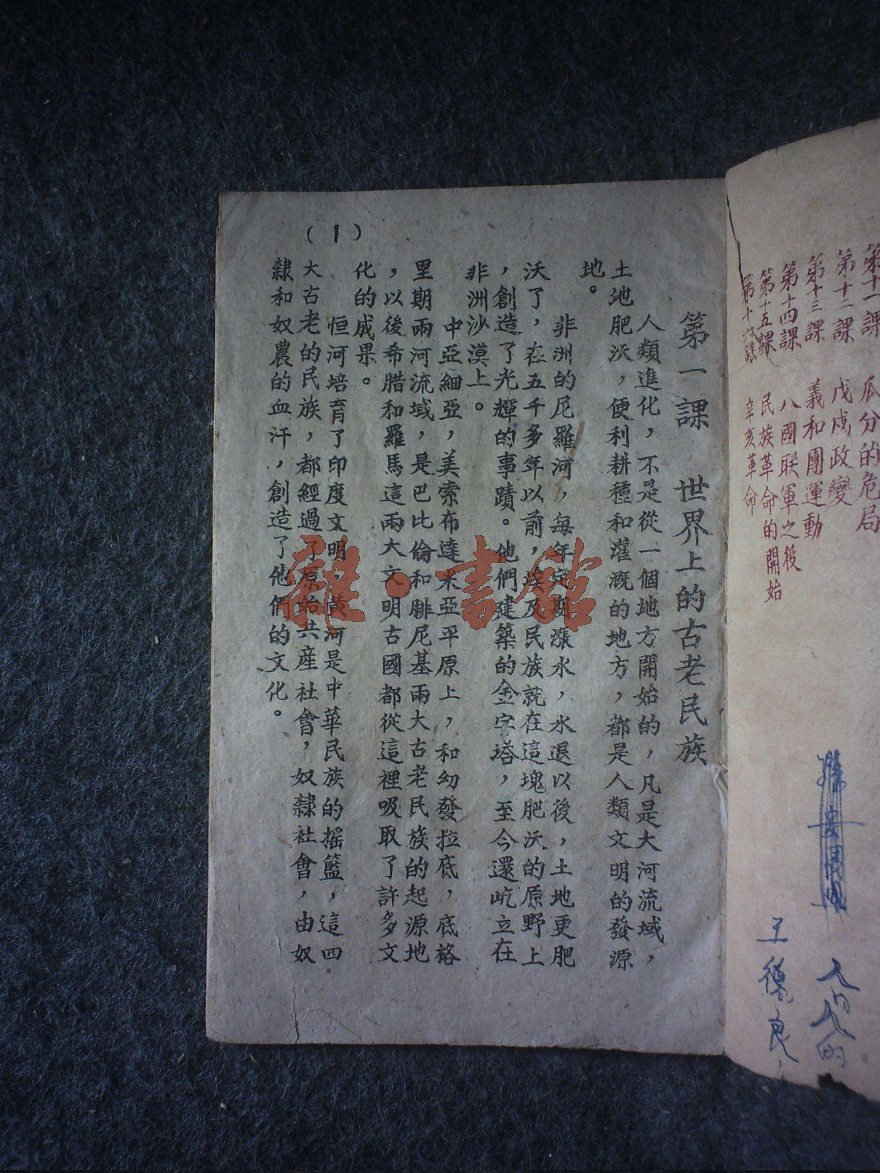 第十一課　瓜分的危局
第十二課　戊戌政變
第十三課　義和團運動
第十四課　八國联軍之後
第十五課　民族革命的開始
第十六課　辛亥革命
王德良
第一課　世界上的古老民族
人類進化，不是從一個地方開始的，凡是大河流域，
土地肥沃，便利耕種和灌溉的地方，都是人類文明的發源
地。
非洲的尼羅河，每年定期漲水，水退以後，土地更肥
沃了，在五千多年以前，埃及民族就在這塊肥沃的原野上
，創造了光輝的事蹟。他們建築的金字塔，至今還屹立在
非洲沙漠上。
中亞細亞，美索布達米亞平原上，和幼發拉底，底格
里期兩河流域，是巴比倫和腓尼基兩大古老民族的起源地
，以後希腊和羅馬這兩大文明古國都從這裡吸取了許多文
化的成果。
恒河培育了印度文明，黃河是中華民族的搖籃，這四
大古老的民族，都經過了原始共産社會，奴隸社會，由奴
隸和奴農的血汗，創造了他們的文化。
（1）
雜·書館